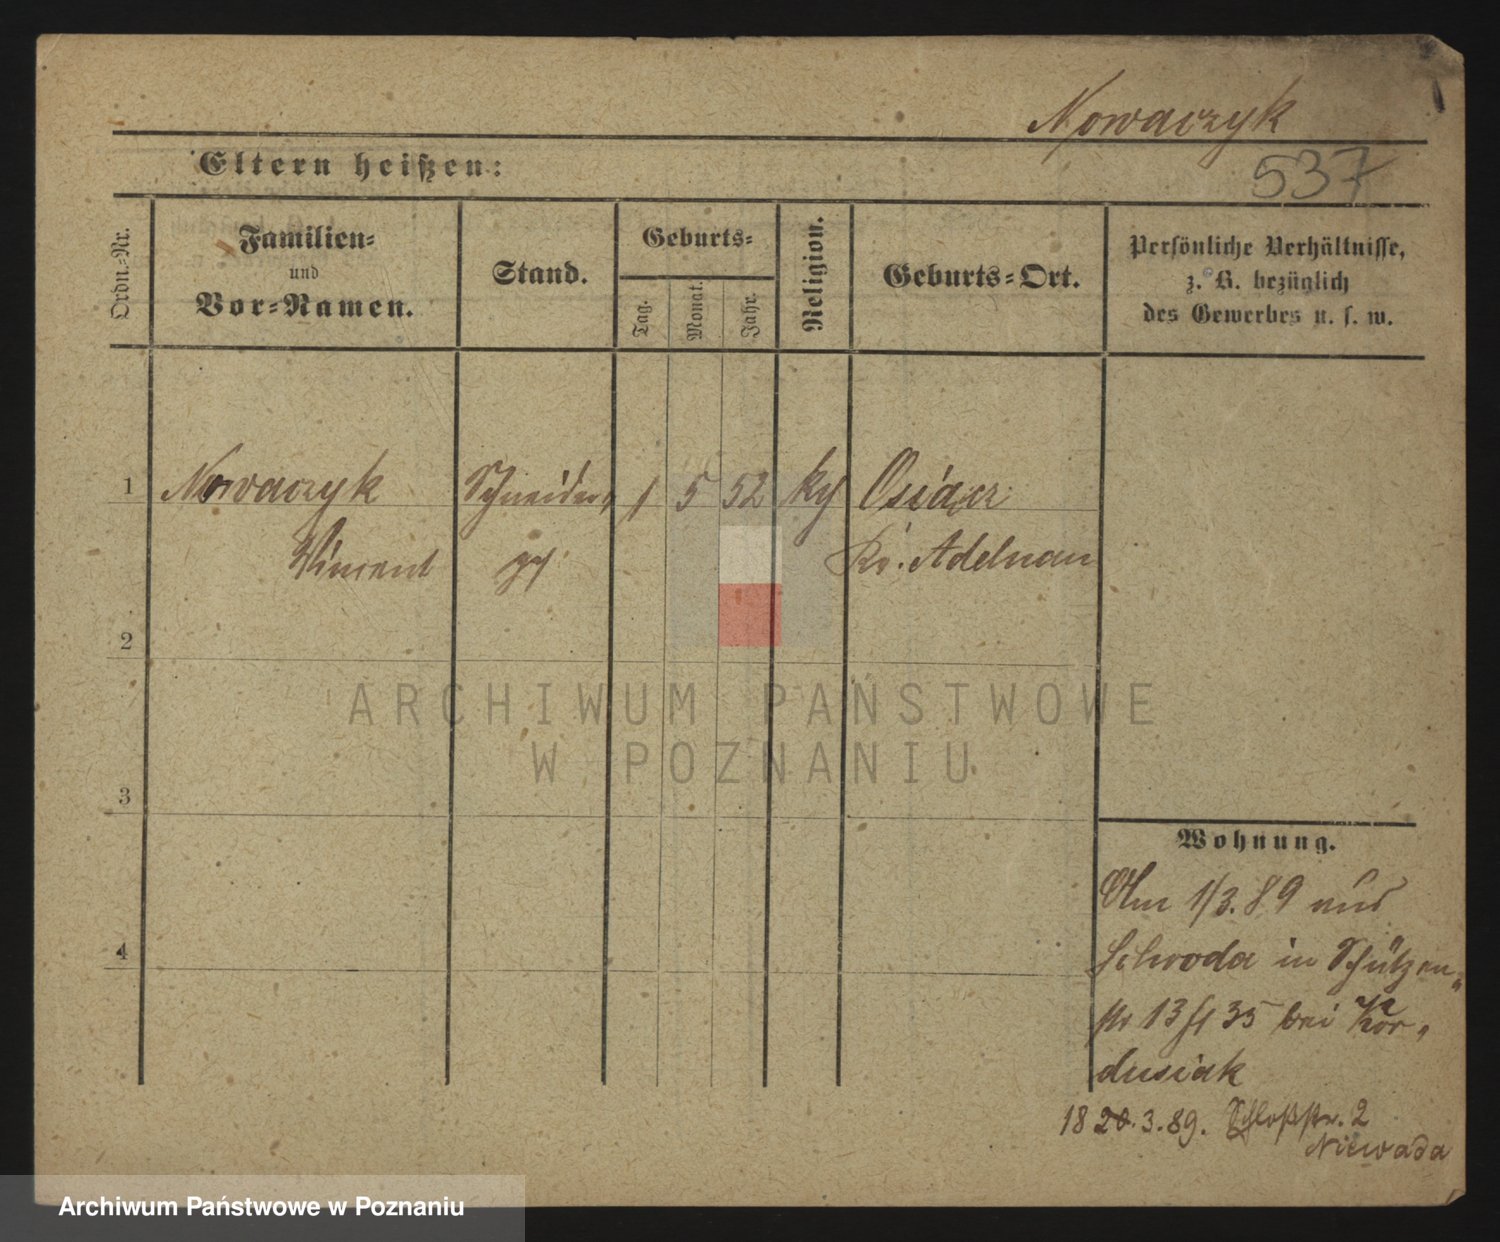 Nowaczyk
537
Eltern heißen:
Ordn.-Nr.
Familien-
und
Vor-Namen.
Stand.
Geburts-
Tag.
Monat.
Jahr.
Religion.
Geburts-Ort.
Persönliche Verhältnisse,
z. B. bezüglich
des Gewerbes u. s. w.
1 Nowaczyk Schneider, 1 5 52 Osiącz
Vincent Kr. Adelnau
2
3
4
Wohnung.
1/3.89 aus
Schroda in Schützen-
str 13 35 bei Kor-
dusiak
18 20.3.89. Schloßstr. 2
Niewada
ARCHIWUM PAŃSTWOWE
W POZNANIU
Archiwum Państwowe w Poznaniu